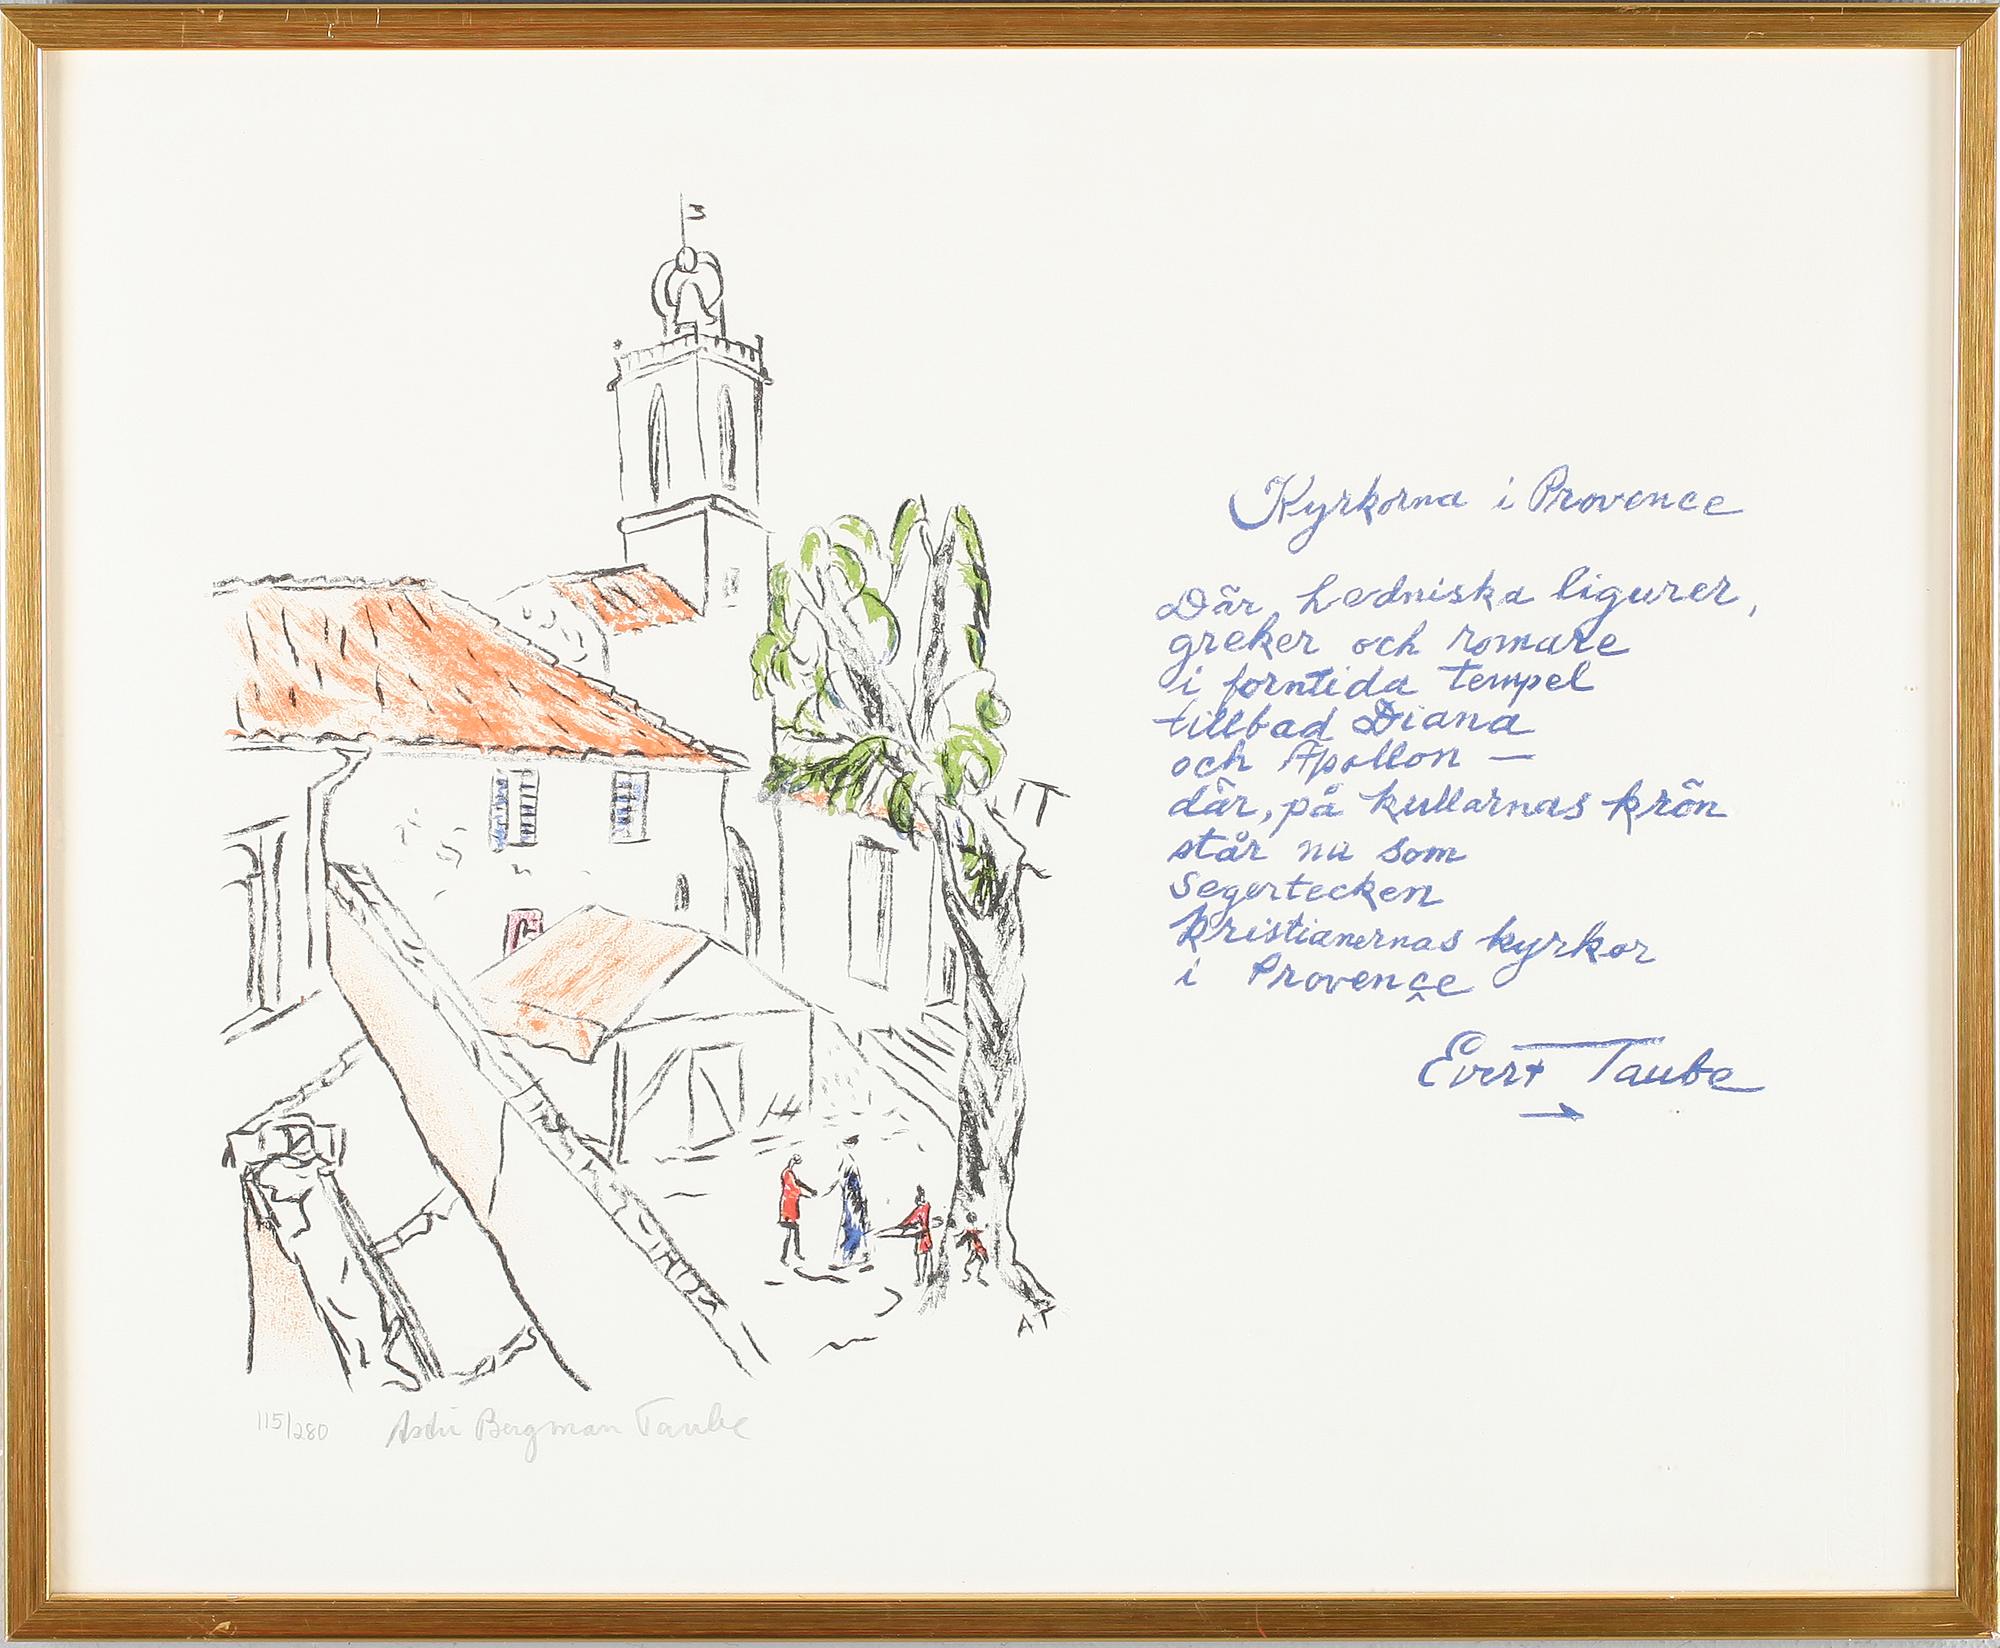 Kyrkorna i Provence
Där, hedniska ligurer,
greker och romare
i forntida tempel
tillbad Diana
och Apollon —
där, på kullarnas krön
står nu som
segertecken
kristianernas kyrkor
i Provence
Evert Taube
AT
115/280 Astri Bergman Taube